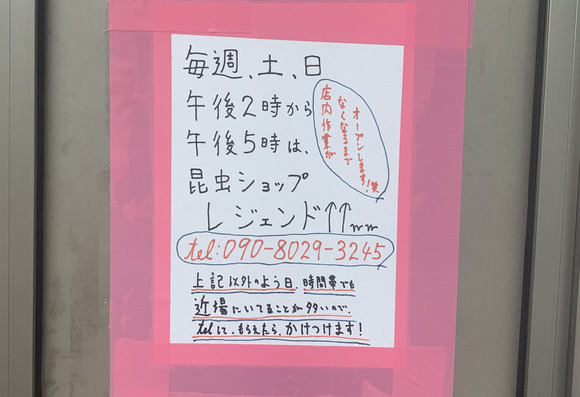 毎週、土、日
午後2時から
午後5時は、
昆虫ショップ
レジェンド↑↑ww
店内作業が
なくなるまで
オープンします!笑
tel:090-8029-3245
上記以外のよう日、時間帯でも
近場にいてることが多いので、
telして、もらえたら、かけつけます!